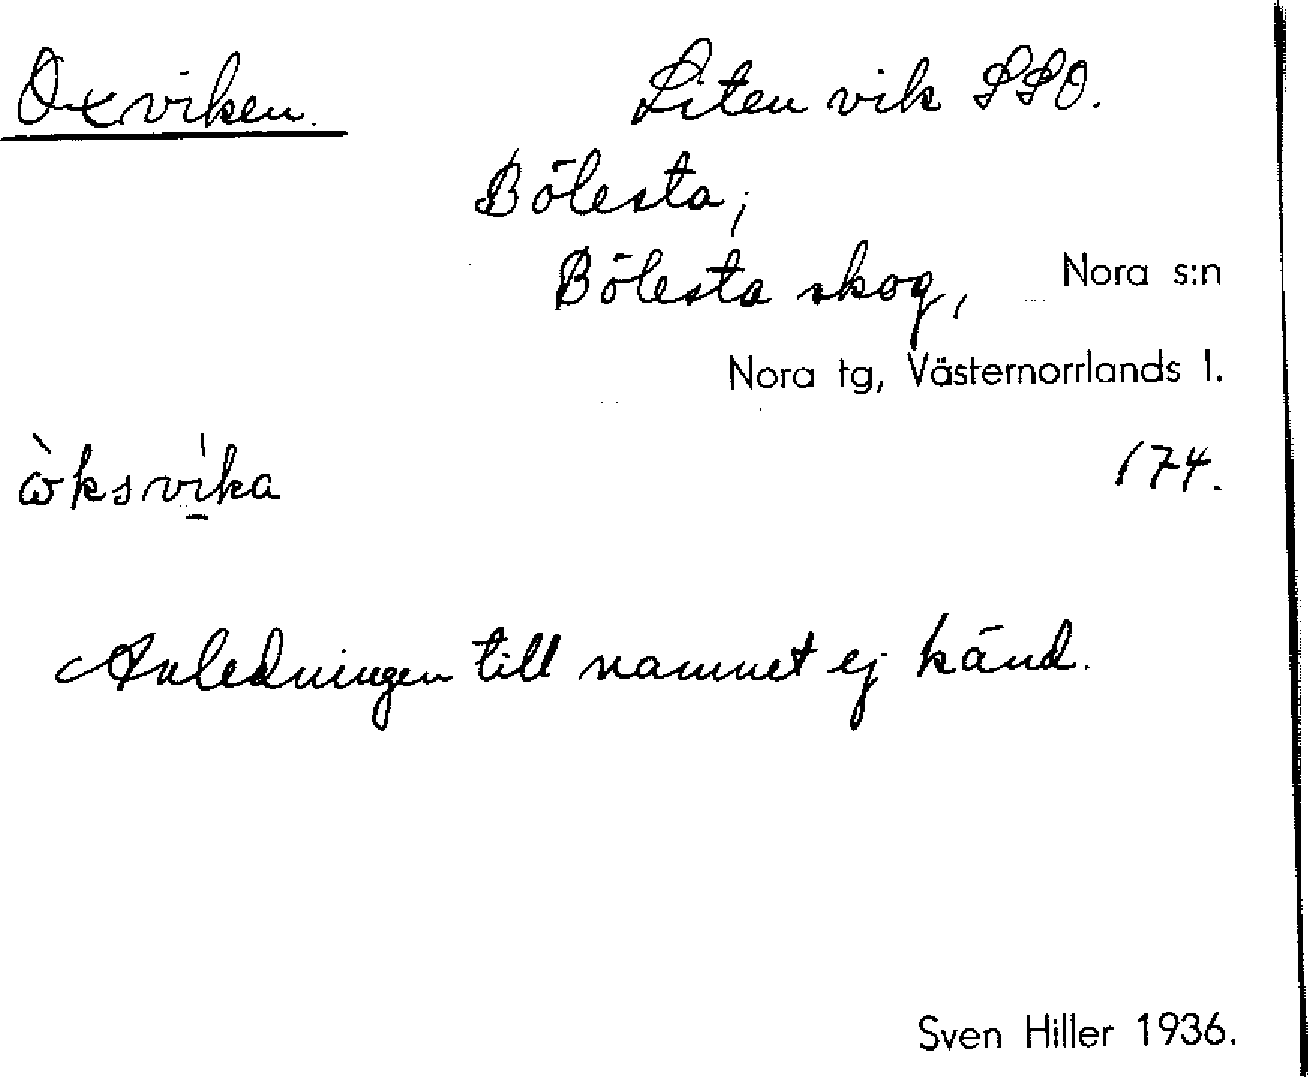 Oxviken. Liten vik SSO.
Bölesta,
Bölesta skog, Nora s:n
Nora tg, Västernorrlands l.
ὼksvi̱ka 174.
Anledningen till namnet ej känd.
Sven Hiller 1936.